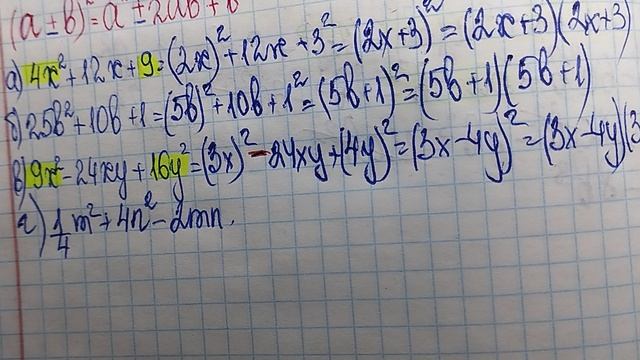 (a ± b)² = a² ± 2ab + b²
а) 4x² + 12x + 9 = (2x)² + 12x + 3² = (2x+3)² = (2x+3)(2x+3)
б) 25b² + 10b + 1 = (5b)² + 10b + 1² = (5b+1)² = (5b+1)(5b+1)
в) 9x² - 24xy + 16y² = (3x)² - 24xy + (4y)² = (3x-4y)² = (3x-4y)(3
г) 1/4 m² + 4n² - 2mn.